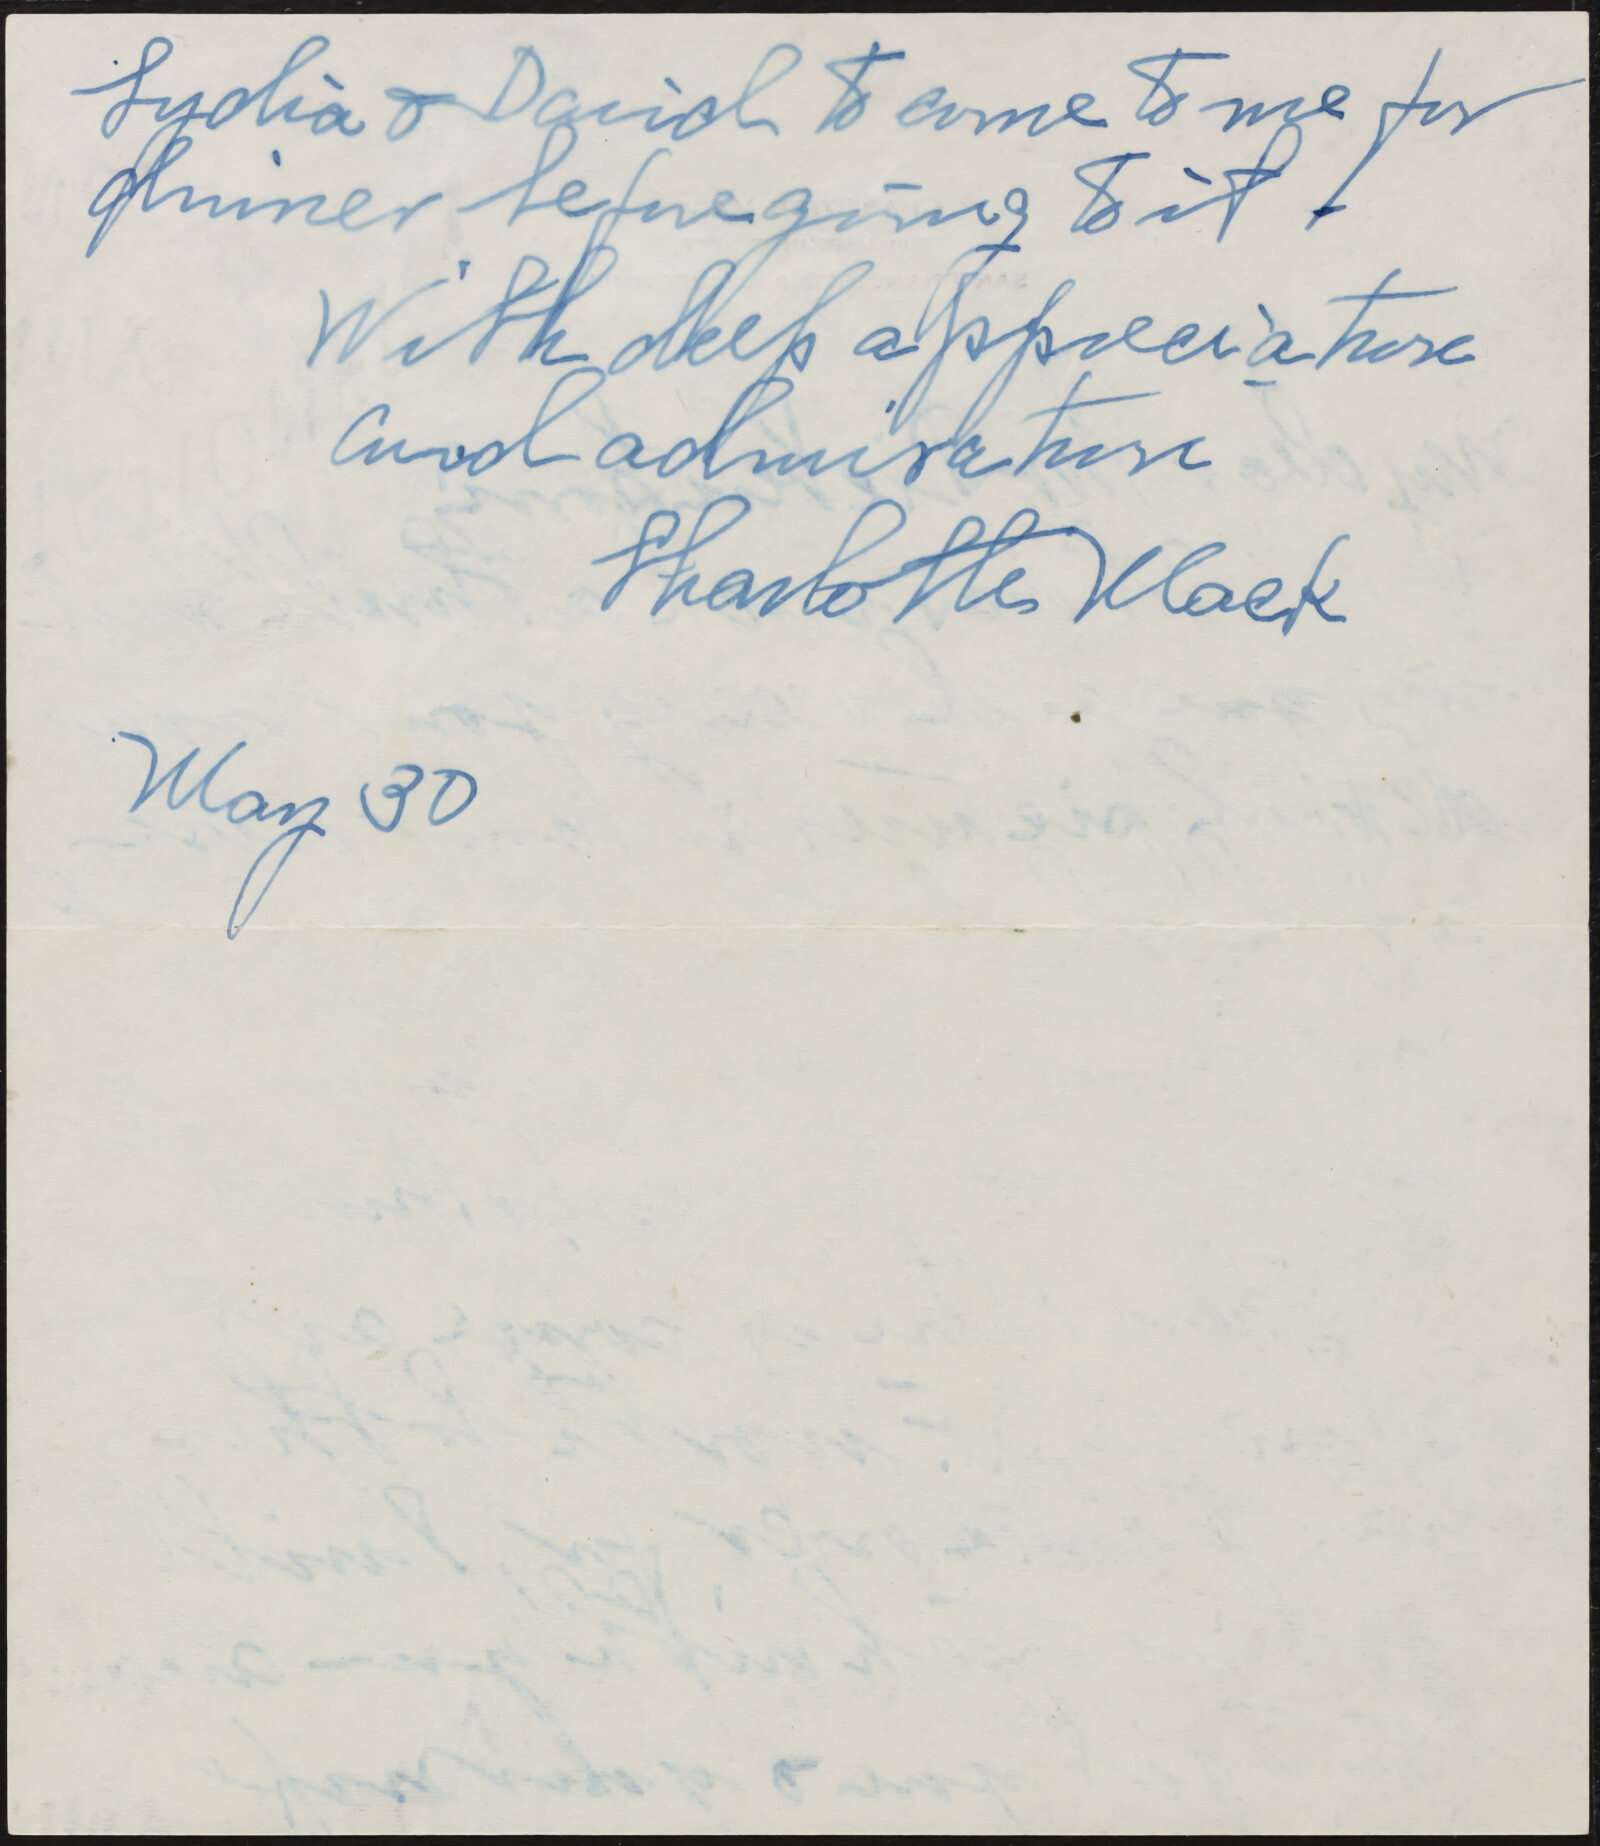 Lydia & David to come to me for
dinner before going to it!
With deep appreciation
and admiration
Charlotte Mack
May 30